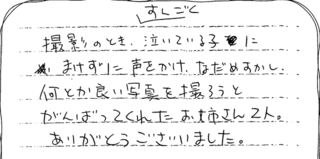 すんごく
撮影のとき、泣いている子に
まけずに声をかけ、なだめすかし、
何とか良い写真を撮ろうと
がんばってくれたお姉さん2人。
ありがとうございました。